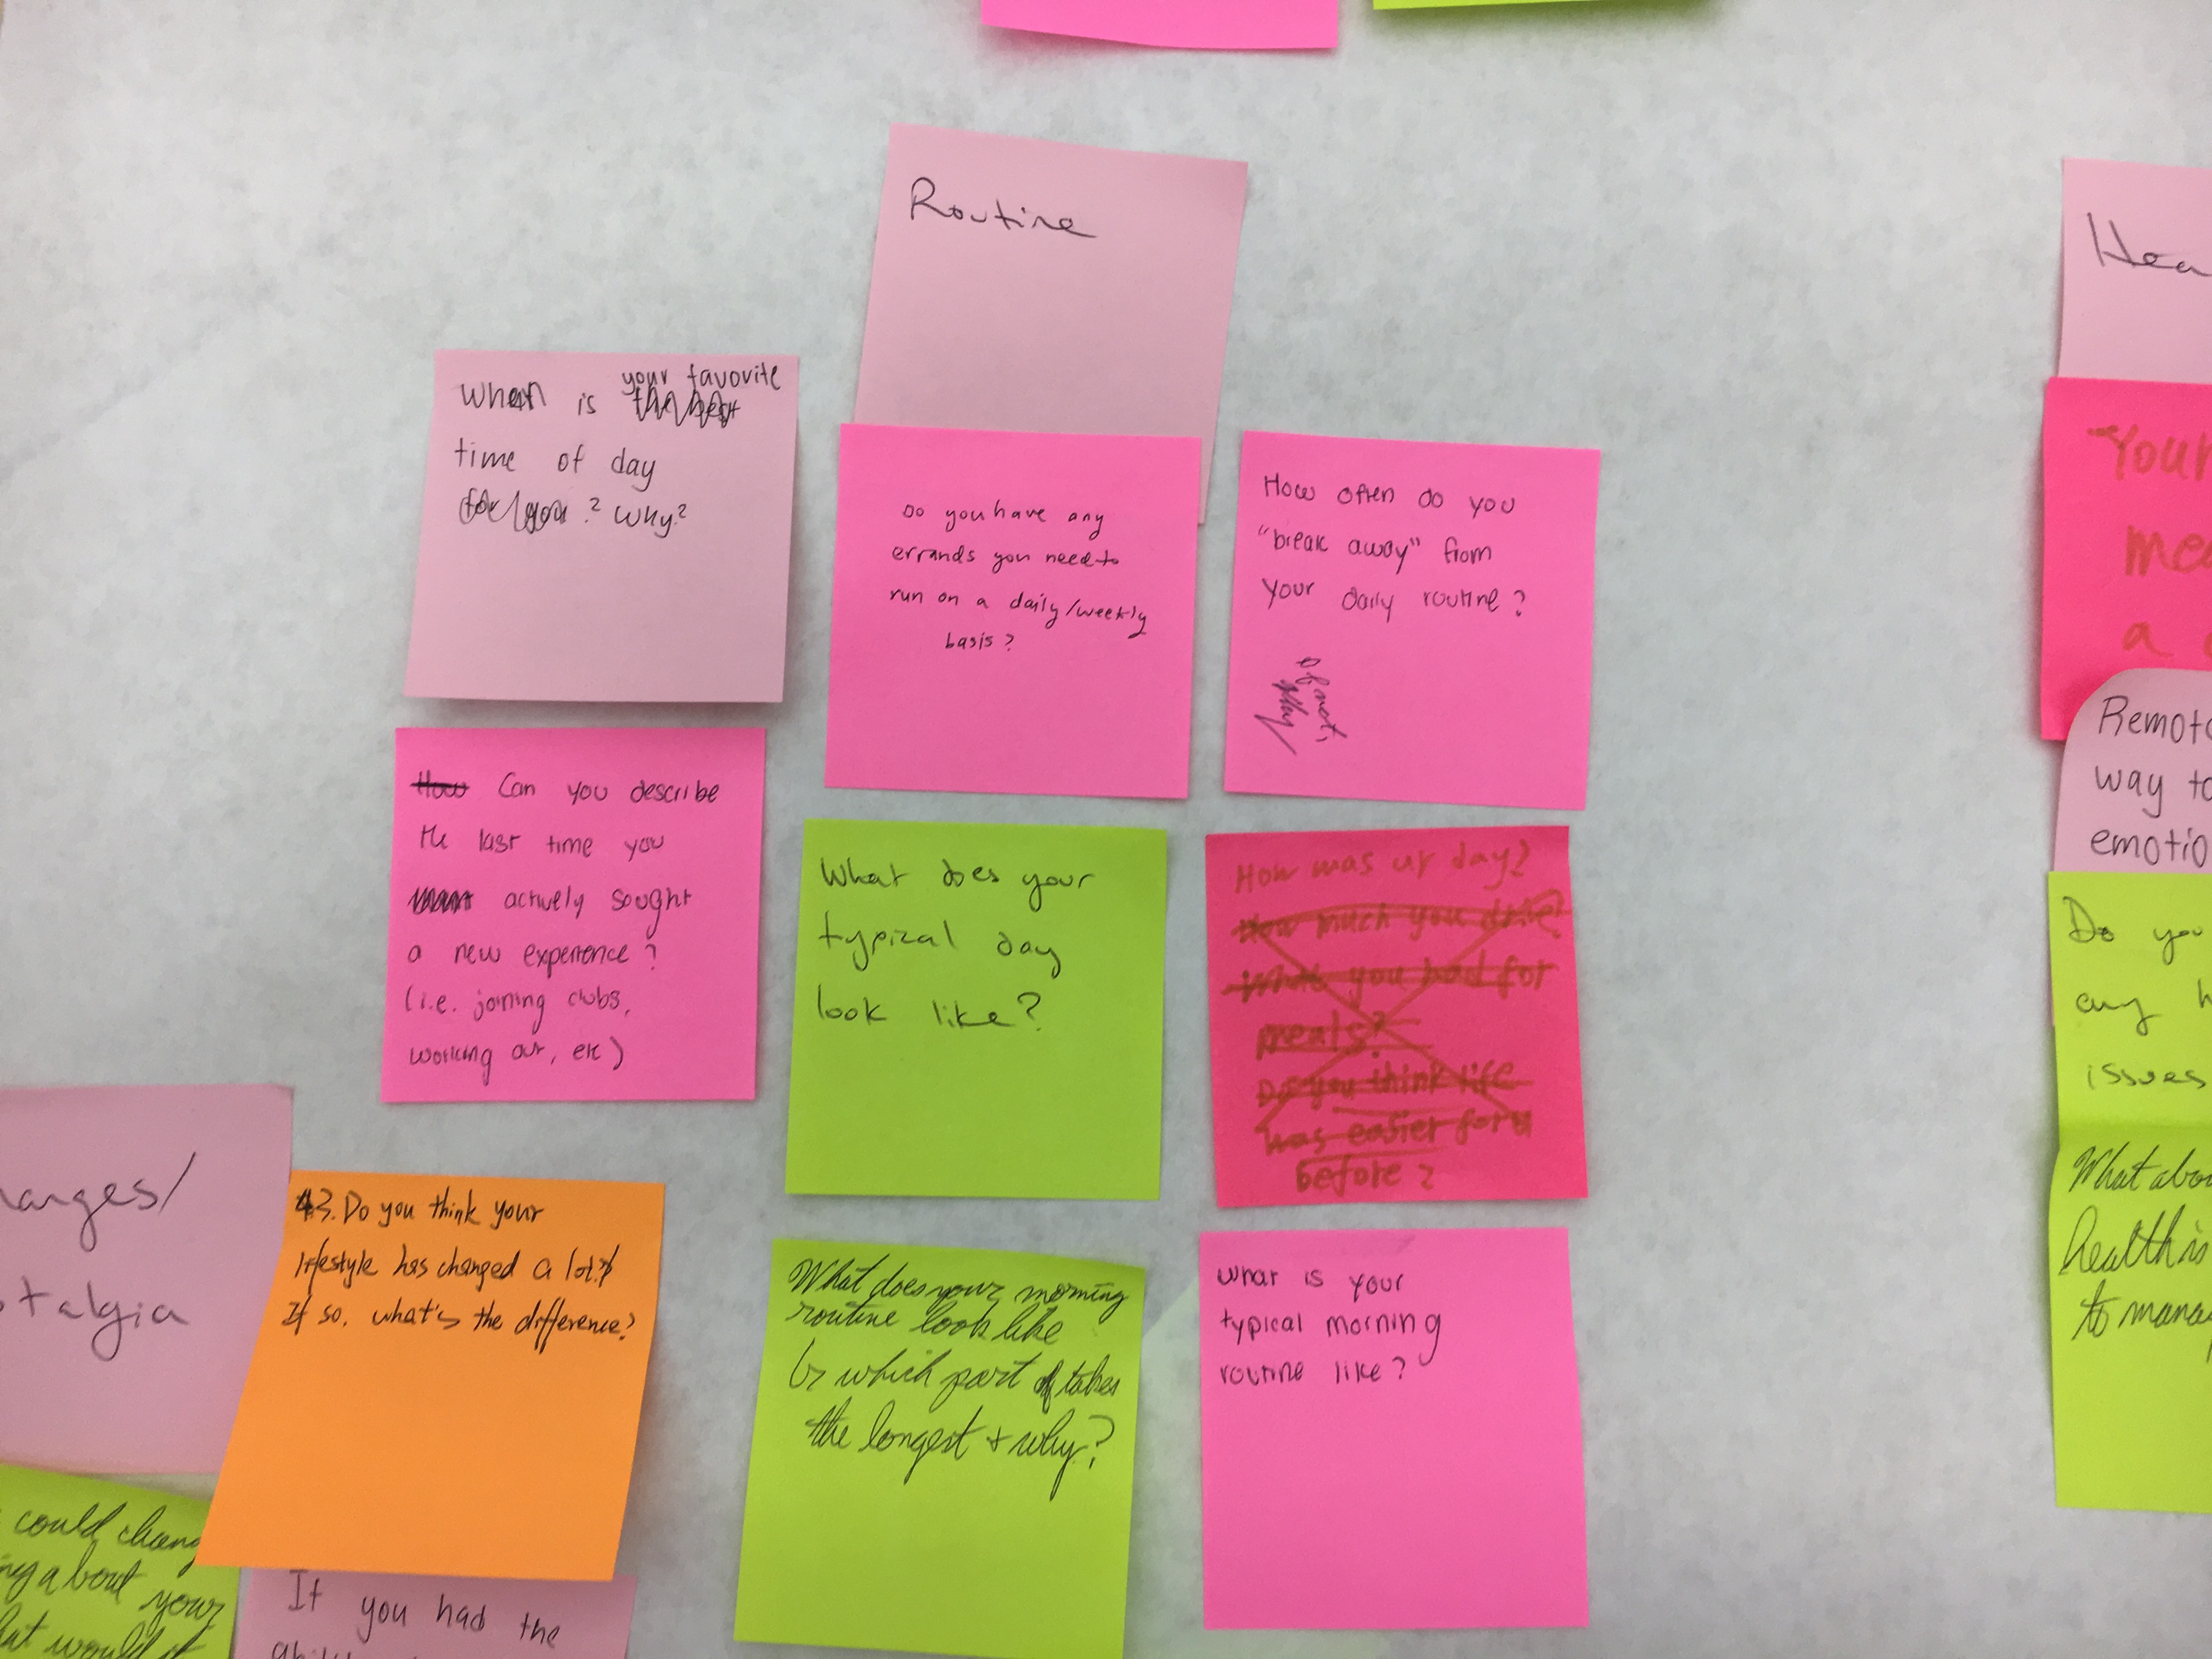 Routine
When is your favorite
the best
time of day
for you? Why?
Do you have any
errands you need to
run on a daily/weekly
basis?
How often do you
"break away" from
your daily routine?
If not,
Why
How Can you describe
the last time you
actively sought
a new experience?
(i.e. joining clubs,
working out, etc)
What does your
typical day
look like?
How was ur day?
How much you drive?
What you had for
meals?
Do you think life
was easier for u
before?
3. Do you think your
lifestyle has changed a lot?
If so, what's the difference?
What does your morning
routine look like
which part takes
the longest + why?
What is your
typical morning
routine like?
anges/
stalgia
could chang
ng about your
at would it
If you had the
Hea
Your
me
a
Remote
way to
emotio
Do you
any h
issues
What abou
health is
to manag